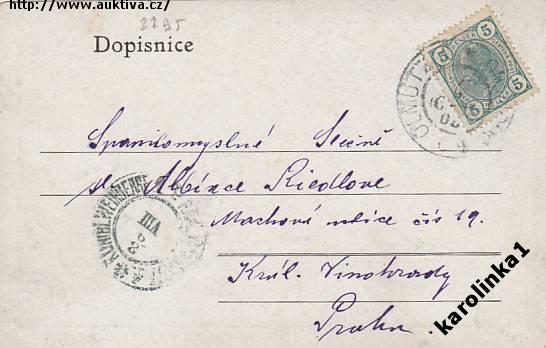 www.auktiva.cz/
2295
Dopisnice
5 5
5 5
OLMÜTZ
Spanilomyslné Slečně
sl. Albínce Riedlove
Machová ulice čís 19.
Král. Vinohrady
Praha
VIII
karolinka1